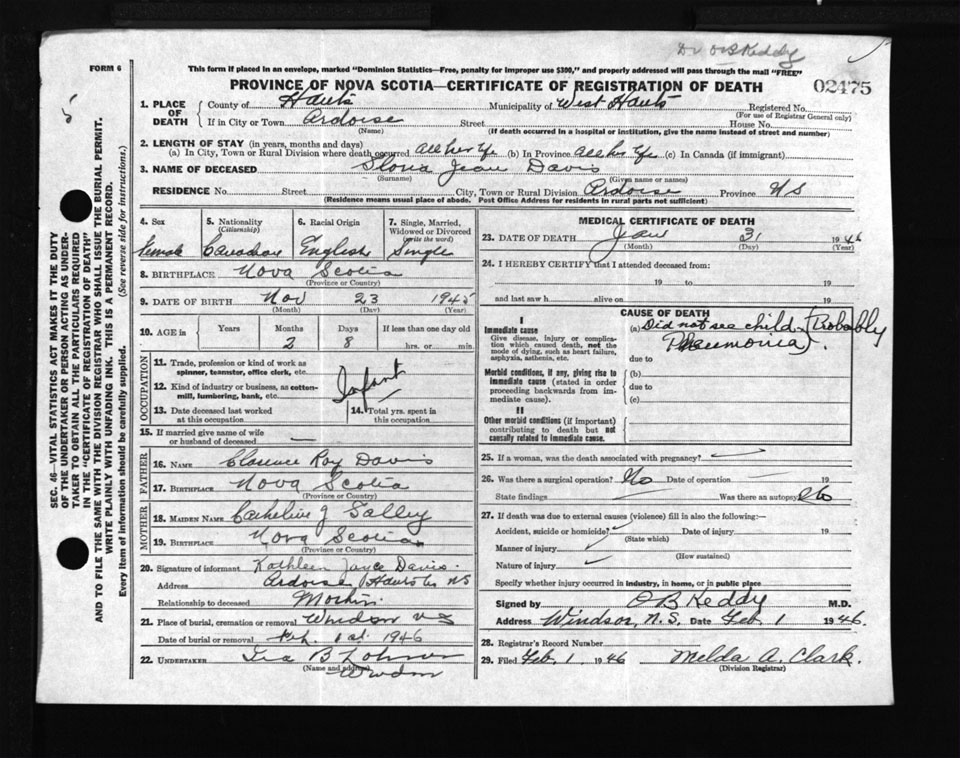 Dr O B Keddy
FORM 6
This form if placed in an envelope, marked "Dominion Statistics—Free, penalty for improper use $300," and properly addressed will pass through the mail "FREE"
PROVINCE OF NOVA SCOTIA—CERTIFICATE OF REGISTRATION OF DEATH
02475
1. PLACE OF DEATH
County of Hants Municipality of West Hants Registered No.
(For use of Registrar General only)
If in City or Town Ardoise Street House No.
(Name) (If death occurred in a hospital or institution, give the name instead of street and number)
2. LENGTH OF STAY (in years, months and days)
(a) In City, Town or Rural Division where death occurred all her life (b) In Province all her life (c) In Canada (if immigrant)
3. NAME OF DECEASED Jean Davis
(Surname) (Given name or names)
RESIDENCE No. Street City, Town or Rural Division Ardoise Province N S
(Residence means usual place of abode. Post Office Address for residents in rural parts not sufficient)
4. Sex
Female
5. Nationality
(Citizenship)
Canadian
6. Racial Origin
English
7. Single, Married, Widowed or Divorced
(Write the word)
Single
8. BIRTHPLACE Nova Scotia
(Province or Country)
9. DATE OF BIRTH Nov 23 1945
(Month) (Day) (Year)
10. AGE in Years Months Days If less than one day old
2 8 hrs. or min.
OCCUPATION
11. Trade, profession or kind of work as spinner, teamster, office clerk, etc.
12. Kind of industry or business, as cotton-mill, lumbering, bank, etc.
Infant
13. Date deceased last worked at this occupation
14. Total yrs. spent in this occupation
15. If married give name of wife or husband of deceased —
FATHER
16. NAME Clarence Roy Davis
17. BIRTHPLACE Nova Scotia
(Province or Country)
MOTHER
18. MAIDEN NAME J
19. BIRTHPLACE Nova Scotia
(Province or Country)
20. Signature of informant Kathleen Joyce Davis
Address Ardoise Hants Co NS
Relationship to deceased Mother
21. Place of burial, cremation or removal Windsor N S
Date of burial or removal Feb. 1st 1946
22. UNDERTAKER Ira B
(Name and address) Windsor
MEDICAL CERTIFICATE OF DEATH
23. DATE OF DEATH Jan 31 1946
(Month) (Day) (Year)
24. I HEREBY CERTIFY that I attended deceased from:
19 to 19
and last saw h alive on 19
CAUSE OF DEATH
I
Immediate cause
Give disease, injury or complication which caused death, not the mode of dying, such as heart failure, asphyxia, asthenia, etc.
(a) Did not see child. (Probably
Pneumonia)
due to
Morbid conditions, if any, giving rise to immediate cause (stated in order proceeding backwards from immediate).
(b)
due to
(c)
II
Other morbid conditions (if important) contributing to death but not causally related to immediate cause.
25. If a woman, was the death associated with pregnancy?
26. Was there a surgical operation? No Date of operation 19
State findings Was there an autopsy No
27. If death was due to external causes (violence) fill in also the following:—
Accident, suicide or homicide? Date of injury 19
(State which)
Manner of injury
(How sustained)
Nature of injury
Specify whether injury occurred in industry, in home, or in public place
Signed by O B Keddy M.D.
Address Windsor, N.S. Date Feb 1 1946.
28. Registrar's Record Number
29. Filed Feb. 1 1946 Melda A. Clark.
(Division Registrar)
SEC. 46—VITAL STATISTICS ACT MAKES IT THE DUTY
OF THE UNDERTAKER OR PERSON ACTING AS UNDER-
TAKER TO OBTAIN ALL THE PARTICULARS REQUIRED
IN THE "CERTIFICATE OF REGISTRATION OF DEATH"
AND TO FILE THE SAME WITH THE DIVISION REGISTRAR WHO SHALL ISSUE THE BURIAL PERMIT.
WRITE PLAINLY WITH UNFADING INK. THIS IS A PERMANENT RECORD.
Every item of information should be carefully supplied. (See reverse side for instructions.)